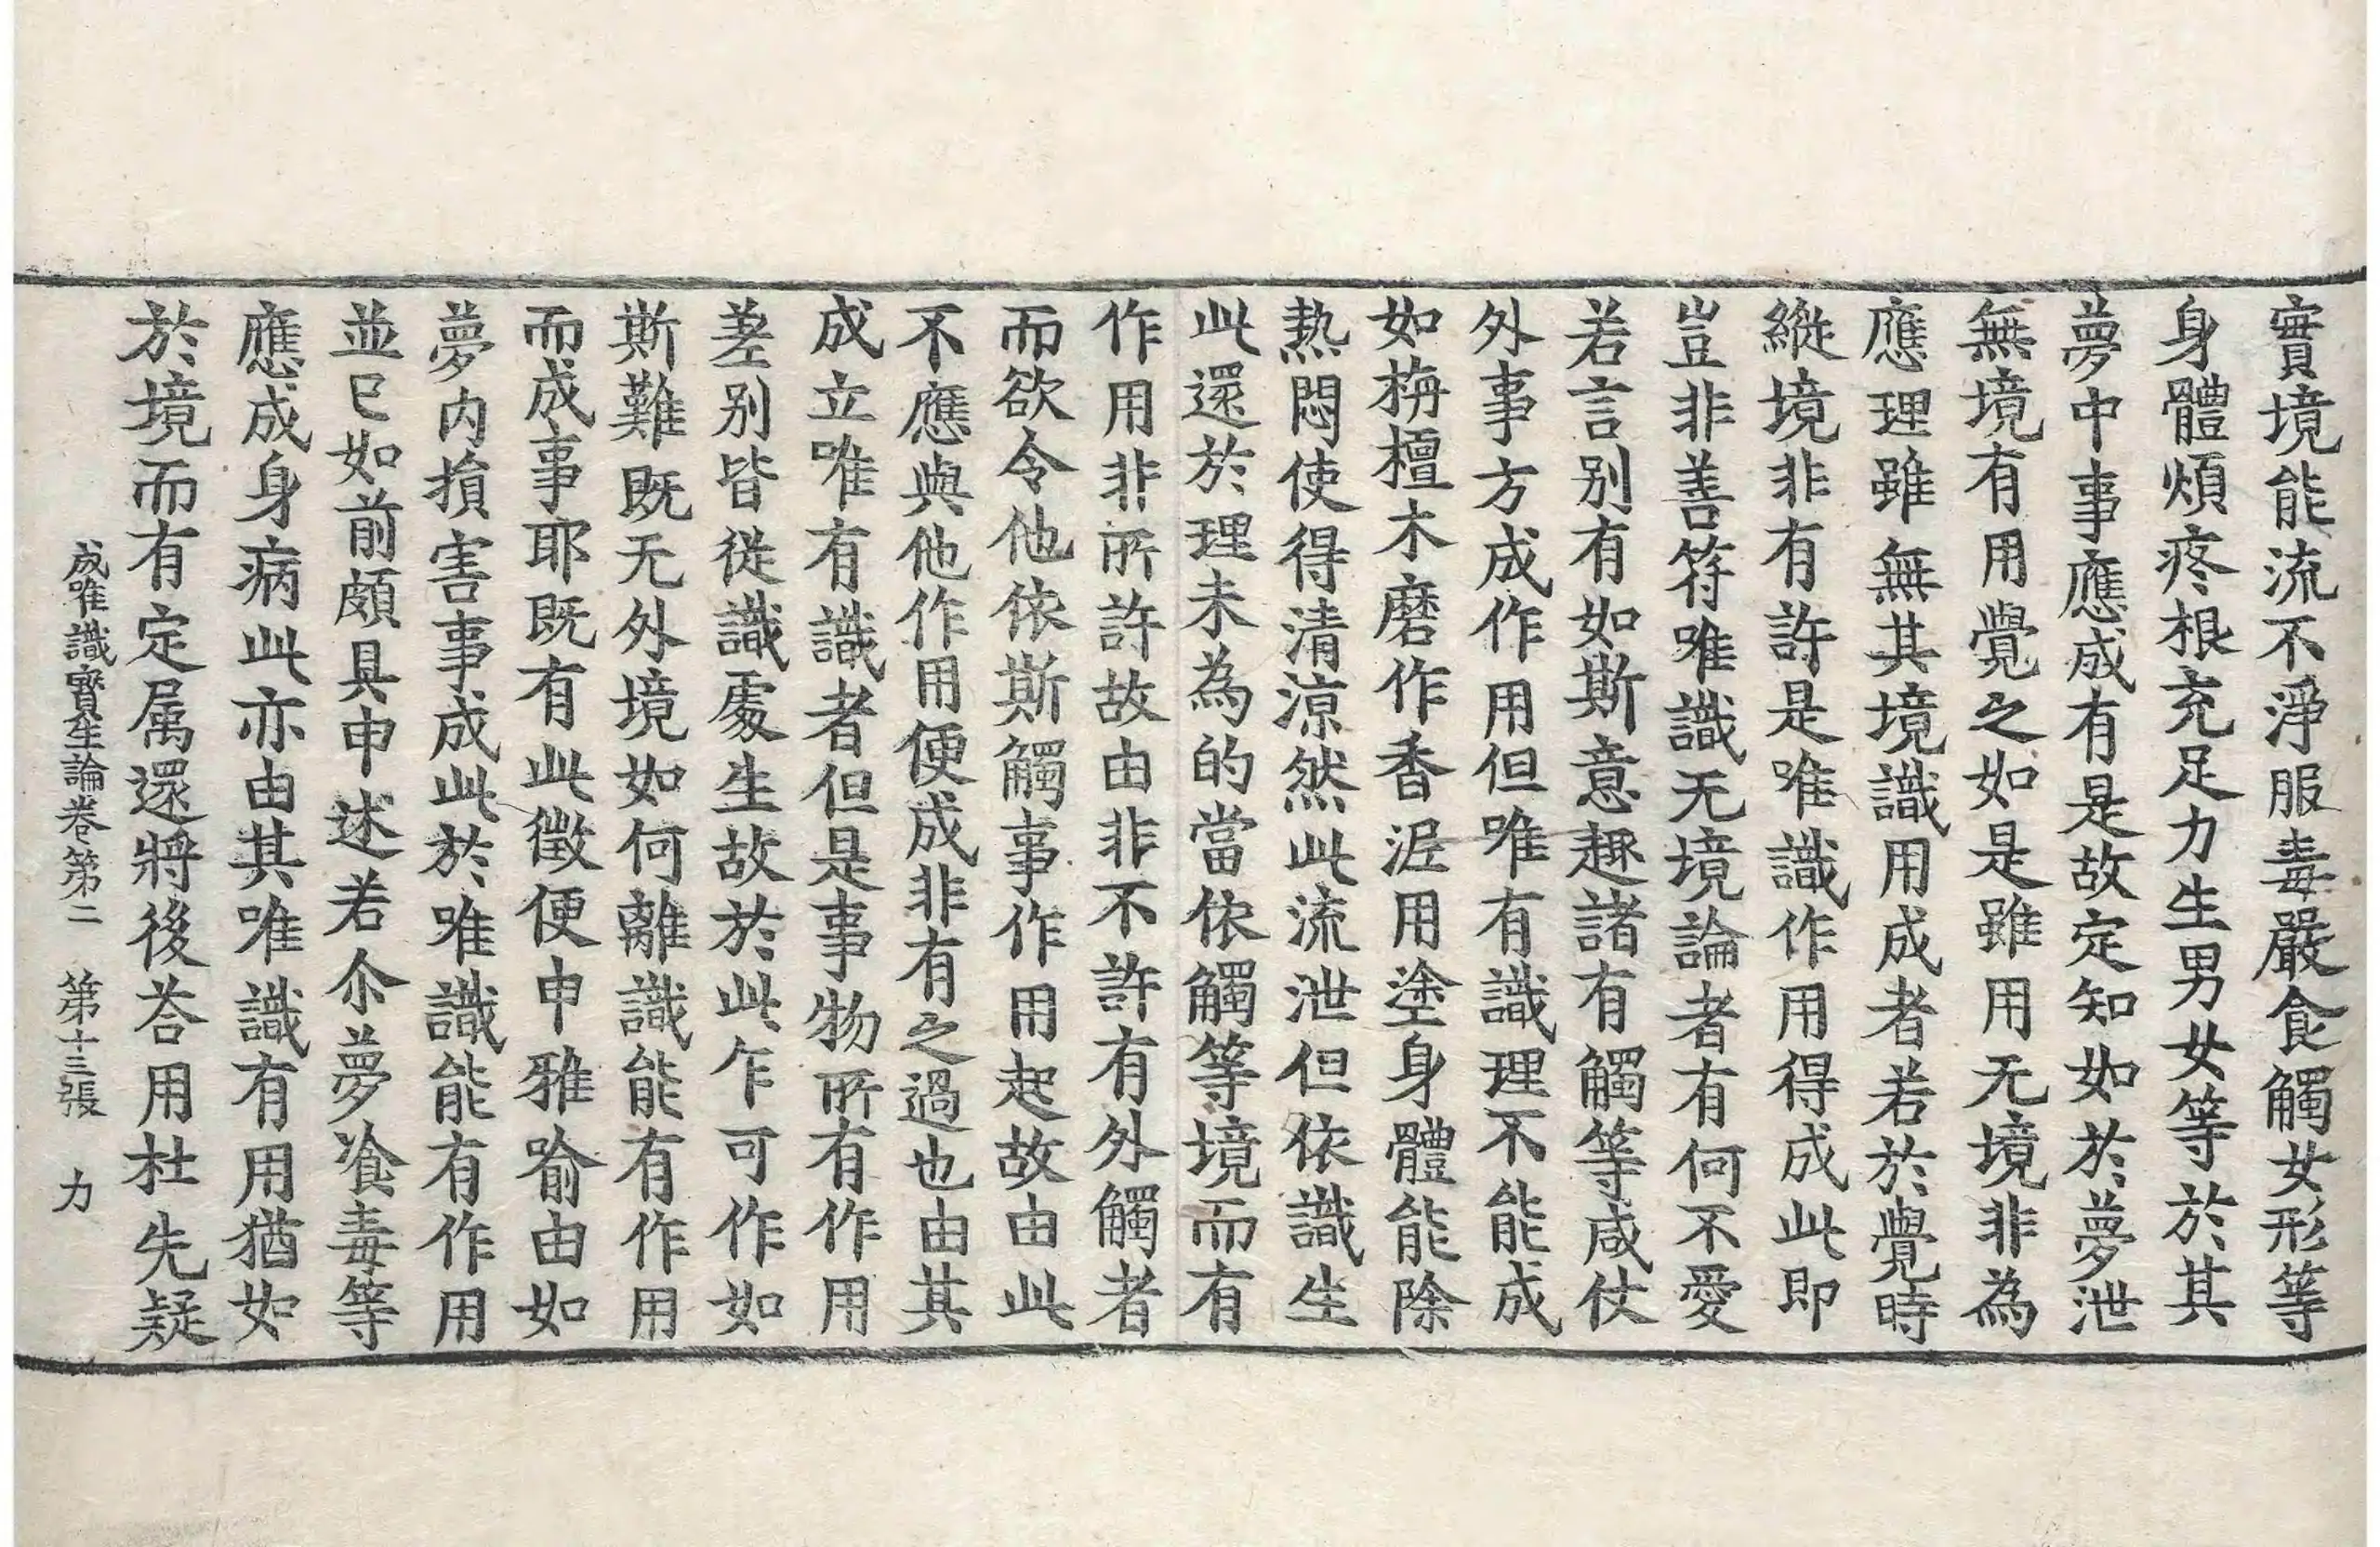 實境能流不淨服毒嚴食觸女形等
身體煩疼根充足力生男女等於其
夢中事應成有是故定知如於夢泄
無境有用覺之如是雖用无境非為
應理雖無其境識用成者若於覺時
縱境非有許是唯識作用得成此即
豈非善符唯識无境論者有何不愛
若言别有如斯意趣諸有觸等咸仗
外事方成作用但唯有識理不能成
如栴檀木磨作香泥用塗身體能除
熱悶使得清涼然此流泄但依識生
此還於理未為的當依觸等境而有
作用非所許故由非不許有外觸者
而欲令他依斯觸事作用起故由此
不應與他作用便成非有之過也由其
成立唯有識者但是事物所有作用
差别皆從識處生故於此乍可作如
斯難既无外境如何離識能有作用
而成事耶既有此徵便申雅喻由如
夢内損害事成此於唯識能有作用
並已如前頗具申述若尒夢飡毒等
應成身病此亦由其唯識有用猶如
於境而有定属還將後荅用杜先疑
成唯識寶生論卷第二　第十三張　力